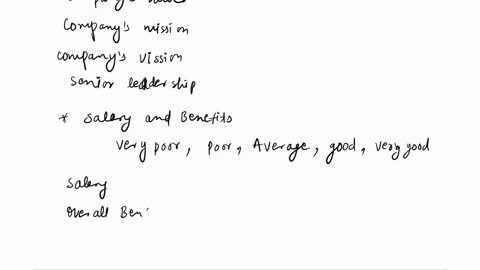 Company's mission
company's vission
senior leadership
* Salary and Benefits
very poor, poor, Average, good, very good
Salary
Overall Ben